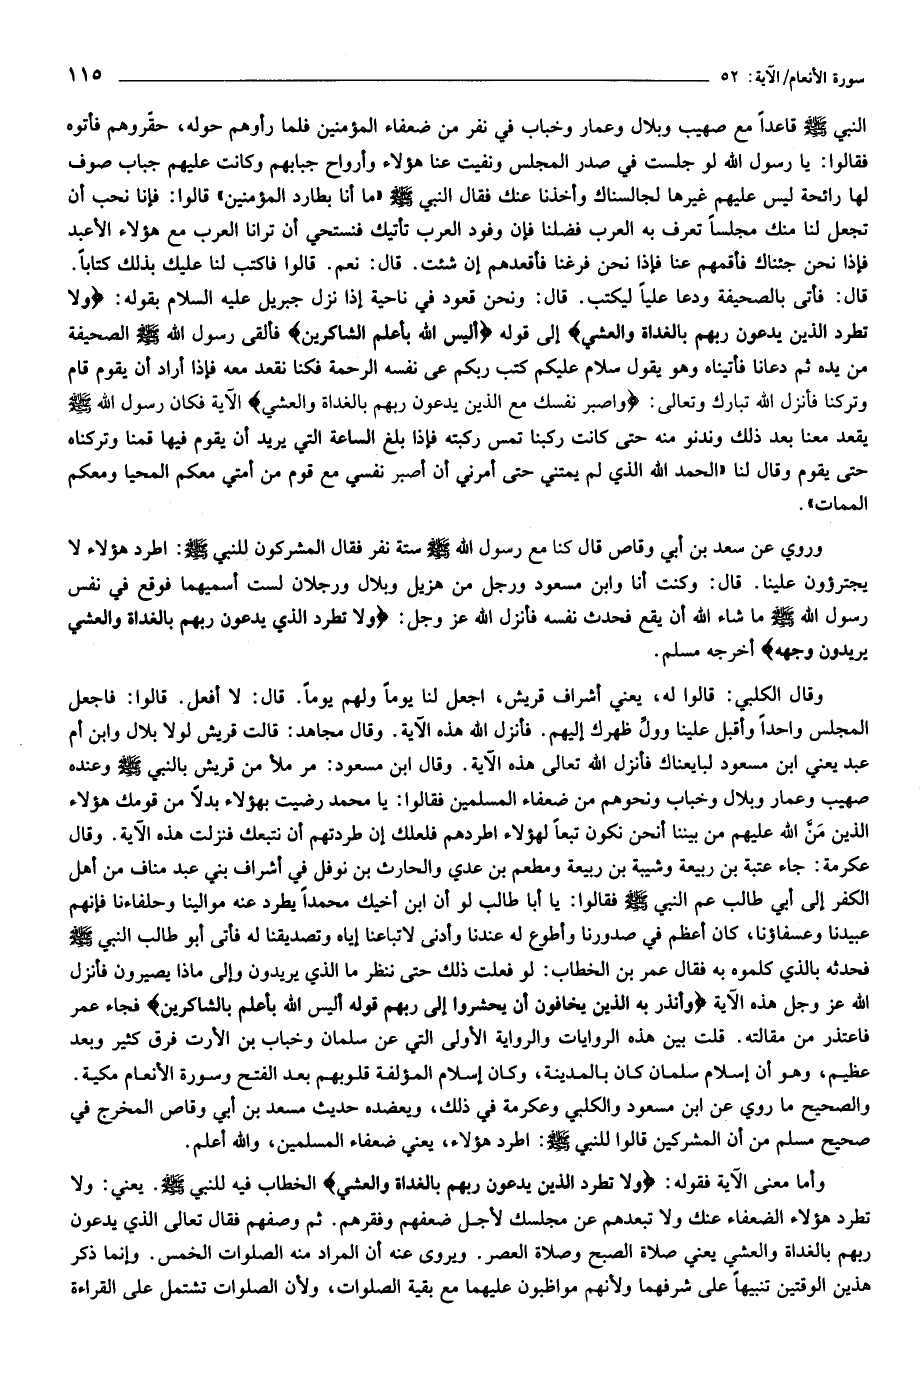 سورة الأنعام/ الآية: ٥٢ ١١٥
النبي ﷺ قاعداً مع صهيب وبلال وعمار وخباب في نفر من ضعفاء المؤمنين فلما رأوهم حوله، حقّروهم فأتوه
فقالوا: يا رسول الله لو جلست في صدر المجلس ونفيت عنا هؤلاء وأرواح جبابهم وكانت عليهم جباب صوف
لها رائحة ليس عليهم غيرها لجالسناك وأخذنا عنك فقال النبي ﷺ «ما أنا بطارد المؤمنين» قالوا: فإنا نحب أن
تجعل لنا منك مجلساً تعرف به العرب فضلنا فإن وفود العرب تأتيك فنستحي أن ترانا العرب مع هؤلاء الأعبد
فإذا نحن جئناك فأقمهم عنا فإذا نحن فرغنا فأقعدهم إن شئت. قال: نعم. قالوا فاكتب لنا عليك بذلك كتاباً.
قال: فأتى بالصحيفة ودعا علياً ليكتب. قال: ونحن قعود في ناحية إذا نزل جبريل عليه السلام بقوله: ﴿ولا
تطرد الذين يدعون ربهم بالغداة والعشي﴾ إلى قوله ﴿أليس الله بأعلم الشاكرين﴾ فألقى رسول الله ﷺ الصحيفة
من يده ثم دعانا فأتيناه وهو يقول سلام عليكم كتب ربكم عى نفسه الرحمة فكنا نقعد معه فإذا أراد أن يقوم قام
وتركنا فأنزل الله تبارك وتعالى: ﴿واصبر نفسك مع الذين يدعون ربهم بالغداة والعشي﴾ الآية فكان رسول الله ﷺ
يقعد معنا بعد ذلك وندنو منه حتى كانت ركبنا تمس ركبته فإذا بلغ الساعة التي يريد أن يقوم فيها قمنا وتركناه
حتى يقوم وقال لنا «الحمد الله الذي لم يمتني حتى أمرني أن أصبر نفسي مع قوم من أمتي معكم المحيا ومعكم
الممات».
وروي عن سعد بن أبي وقاص قال كنا مع رسول الله ﷺ ستة نفر فقال المشركون للنبي ﷺ: اطرد هؤلاء لا
يجترؤون علينا. قال: وكنت أنا وابن مسعود ورجل من هزيل وبلال ورجلان لست أسميهما فوقع في نفس
رسول الله ﷺ ما شاء الله أن يقع فحدث نفسه فأنزل الله عز وجل: ﴿ولا تطرد الذي يدعون ربهم بالغداة والعشي
يريدون وجهه﴾ أخرجه مسلم.
وقال الكلبي: قالوا له، يعني أشراف قريش، اجعل لنا يوماً ولهم يوماً. قال: لا أفعل. قالوا: فاجعل
المجلس واحداً وأقبل علينا وولّ ظهرك إليهم. فأنزل الله هذه الآية. وقال مجاهد: قالت قريش لولا بلال وابن أم
عبد يعني ابن مسعود لبايعناك فأنزل الله تعالى هذه الآية. وقال ابن مسعود: مر ملأ من قريش بالنبي ﷺ وعنده
صهيب وعمار وبلال وخباب ونحوهم من ضعفاء المسلمين فقالوا: يا محمد رضيت بهؤلاء بدلاً من قومك هؤلاء
الذين مَنَّ الله عليهم من بيننا أنحن نكون تبعاً لهؤلاء اطردهم فلعلك إن طردتهم أن نتبعك فنزلت هذه الآية. وقال
عكرمة: جاء عتبة بن ربيعة وشيبة بن ربيعة ومطعم بن عدي والحارث بن نوفل في أشراف بني عبد مناف من أهل
الكفر إلى أبي طالب عم النبي ﷺ فقالوا: يا أبا طالب لو أن ابن أخيك محمداً يطرد عنه موالينا وحلفاءنا فإنهم
عبيدنا وعسفاؤنا، كان أعظم في صدورنا وأطوع له عندنا وأدنى لاتباعنا إياه وتصديقنا له فأتى أبو طالب النبي ﷺ
فحدثه بالذي كلموه به فقال عمر بن الخطاب: لو فعلت ذلك حتى ننظر ما الذي يريدون وإلى ماذا يصيرون فأنزل
الله عز وجل هذه الآية ﴿وأنذر به الذين يخافون أن يحشروا إلى ربهم قوله أليس الله بأعلم بالشاكرين﴾ فجاء عمر
فاعتذر من مقالته. قلت بين هذه الروايات والرواية الأولى التي عن سلمان وخباب بن الأرت فرق كثير وبعد
عظيم، وهو أن إسلام سلمان كان بالمدينة، وكان إسلام المؤلفة قلوبهم بعد الفتح وسورة الأنعام مكية.
والصحيح ما روي عن ابن مسعود والكلبي وعكرمة في ذلك، ويعضده حديث مسعد بن أبي وقاص المخرج في
صحيح مسلم من أن المشركين قالوا للنبي ﷺ: اطرد هؤلاء، يعني ضعفاء المسلمين، والله أعلم.
وأما معنى الآية فقوله: ﴿ولا تطرد الذين يدعون ربهم بالغداة والعشي﴾ الخطاب فيه للنبي ﷺ. يعني: ولا
تطرد هؤلاء الضعفاء عنك ولا تبعدهم عن مجلسك لأجل ضعفهم وفقرهم. ثم وصفهم فقال تعالى الذي يدعون
ربهم بالغداة والعشي يعني صلاة الصبح وصلاة العصر. ويروى عنه أن المراد منه الصلوات الخمس. وإنما ذكر
هذين الوقتين تنبيهاً على شرفهما ولأنهم مواظبون عليهما مع بقية الصلوات، ولأن الصلوات تشتمل على القراءة